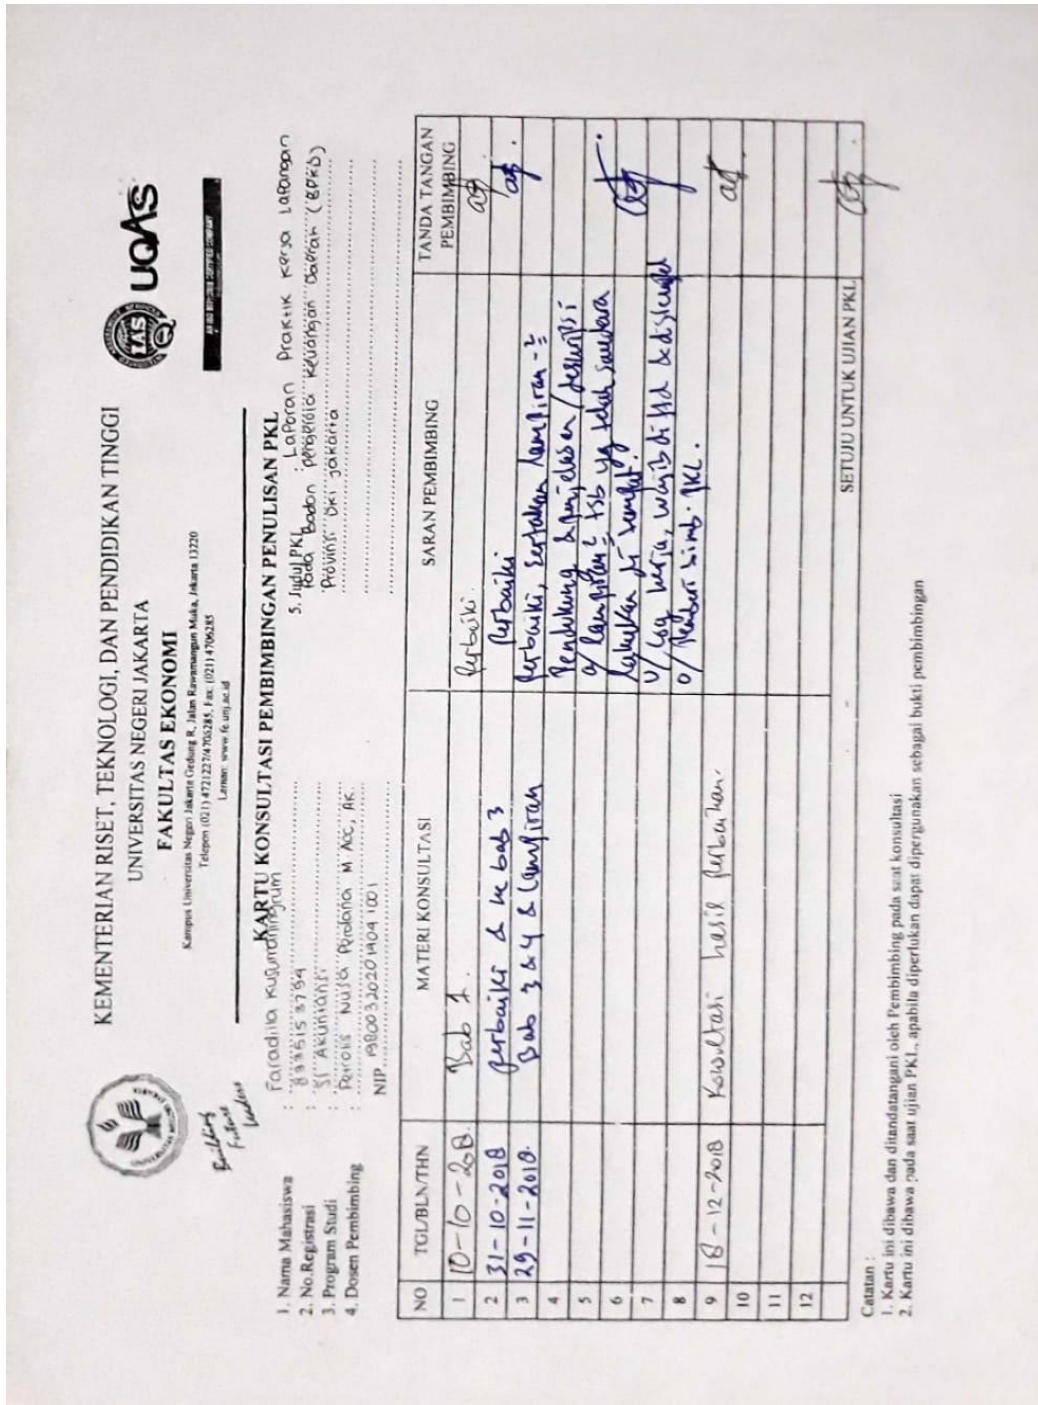 KEMENTERIAN RISET, TEKNOLOGI, DAN PENDIDIKAN TINGGI
UNIVERSITAS NEGERI JAKARTA
FAKULTAS EKONOMI
Kampus Universitas Negeri Jakarta Gedung R, Jalan Rawamangun Muka, Jakarta 13220
Telepon (021) 4721227/4706285, Fax: (021) 4706285
Laman: www.fe.unj.ac.id
Building
Future
Leaders
IAS
UQAS
KARTU KONSULTASI PEMBIMBINGAN PENULISAN PKL
1. Nama Mahasiswa : Faradilla Kusumaningrum
2. No.Registrasi :
3. Program Studi : S1 Akuntansi
4. Dosen Pembimbing : Petrolis Nusa Perdana M Acc, AK
NIP. 198003202014041001
5. Judul PKL : Laporan Praktik Kerja Lapangan
Pada Badan Pengelola Keuangan Daerah (BPKD)
Provinsi DKI Jakarta
NO TGL/BLN/THN MATERI KONSULTASI SARAN PEMBIMBING TANDA TANGAN PEMBIMBING
1 10-10-2018. Bab 1. Perbaiki.
2 31-10-2018 perbaiki & ke bab 3 Perbaiki
3 29-11-2018. Bab 3 & 4 & Lampiran Perbaiki, sertakan lampiran-2
4 Pendukung & penjelasan/deskripsi
5 a/ lampiran2 tsb yg telah saudara
6 lakukan di tempat.
7 U/ log kerja, wajib di ttd & distempel
8 o/ pemberi bimb. PKL.
9 18-12-2018 Konsultasi hasil perbaikan.
10
11
12
SETUJU UNTUK UJIAN PKL
Catatan :
1. Kartu ini dibawa dan ditandatangani oleh Pembimbing pada saat konsultasi
2. Kartu ini dibawa pada saat ujian PKL, apabila diperlukan dapat dipergunakan sebagai bukti pembimbingan